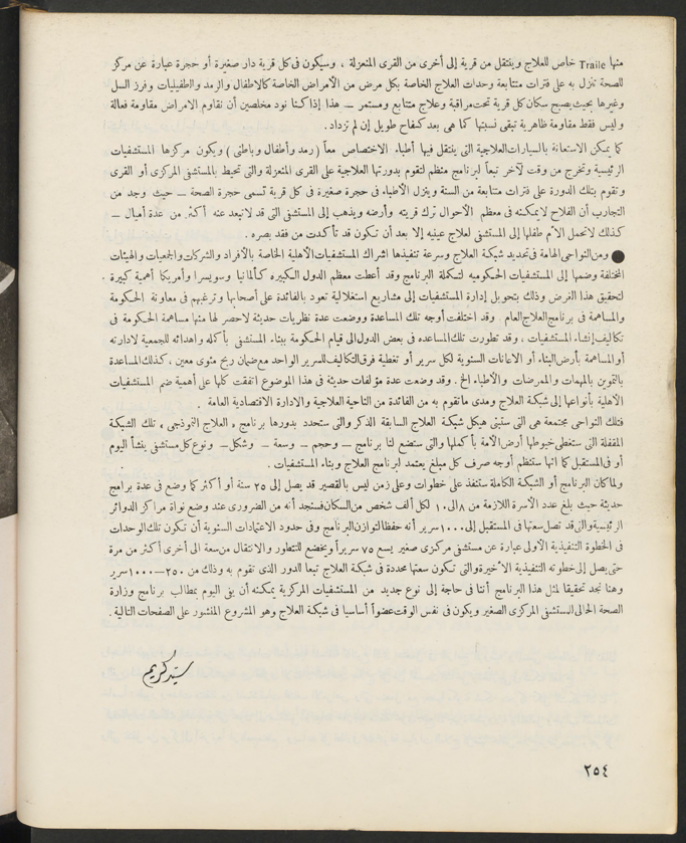 منها Traile خاص للعلاج وينتقل من قرية إلى أخرى من القرى المنعزلة ، وسيكون فى كل قرية دار صغيرة أو حجرة عبارة عن مركز
للصحة تنزل به على فترات متتابعة وحدات العلاج الخاصة بكل مرض من الأمراض الخاصة كالاطفال والرمد والطفيليات وفرز السل
وغيرها بحيث يصبح سكان كل قرية تحت مراقبة وعلاج متتابع ومستمر – هذا إذا كنا نود مخلصين أن نقاوم الامراض مقاومة فعالة
وليس فقط مقاومة ظاهرية تبقى نسبتها كما هى بعد كفاح طويل إن لم تزداد .
كما يمكن الاستعانة بالسيارات العلاجية التى ينتقل فيها أطباء الاختصاص معاً (رمد وأطفال وباطنى) ويكون مركزها المستشفيات
الرئيسية وتخرج من وقت لآخر تبعاً لبرنامج منظم لتقوم بدورتها العلاجية على القرى المنعزلة والتى تحيط بالمستشفى المركزى أو القرى
وتقوم بتلك الدورة على فترات متتابعة من السنة وينزل الأطباء فى حجرة صغيرة فى كل قرية تسمى حجرة الصحة – حيث وجد من
التجارب أن الفلاح لا يمكنه فى معظم الأحوال ترك قريته وأرضه ويذهب إلى المستشفى التى قد لا تبعد عنه أكثر من عدة أميال –
كذلك لا تحمل الأم طفلها إلى المستشفى لعلاج عينيه إلا بعد أن تكون قد تأكدت من فقد بصره .
● ومن النواحى الهامة فى تحديد شبكة العلاج وسرعة تنفيذها اشراك المستشفيات الأهلية الخاصة بالأفراد والشركات والجمعيات والهيئات
المختلفة وضمها إلى المستشفيات الحكوميه لتكملة البرنامج وقد أعطت معظم الدول الكبيره كألمانيا وسويسرا وأمريكا أهمية كبيرة .
لتحقيق هذا الغرض وذلك بتحويل إدارة المستشفيات إلى مشاريع استغلالية تعود بالفائدة على أصحابها وترغبهم فى معاونة الحكومة
والمساهمة فى برنامج العلاج العام . وقد اختلفت أوجه تلك المساعدة ووضعت عدة نظريات حديثة لاحصر لها منها مساهمة الحكومة فى
تكاليف إنشاء المستشفيات ، وقد تطورت تلك المساعده فى بعض الدول الى قيام الحكومة ببناء المستشفى بأكمله واهدائه للجمعية لادارته
أو المساهمة بأرض البناء أو الاعانات السنوية لكل سرير أو تغطية فرق التكاليف للسرير الواحد مع ضمان ربح مئوى معين ، كذلك المساعدة
بالتموين بالمهمات والممرضات والأطباء الخ . وقد وضعت عدة مؤلفات حديثة فى هذا الموضوع اتفقت كلها على أهمية ضم المستشفيات
الأهلية بأنواعها إلى شبكة العلاج ومدى ما تقوم به من الفائدة من الناحية العلاجية والادارة الاقتصادية العامة .
فتلك النواحى مجتمعة هى التى ستبنى هيكل شبكة العلاج السابقة الذكر والتى ستحدد بدورها برنامج « العلاج النموذجى » تلك الشبكة
المقفلة التى ستغطى خيوطها أرض الأمة بأكملها والتى ستضع لنا برنامج – وحجم – وسعة – وشكل – ونوع كل مستشفى ينشأ اليوم
أو فى المستقبل كما انها ستنظم أوجه صرف كل مبلغ يعتمد لبرنامج العلاج وبناء المستشفيات .
ولما كان البرنامج أو الشبكة الكاملة ستنفذ على خطوات وعلى زمن ليس بالقصير قد يصل إلى ٢٥ سنة أو أكثر كما وضع فى عدة برامج
حديثة حيث بلغ عدد الأسرة اللازمة من ٨ الى ١٠ لكل ألف شخص من السكان فستجد أنه من الضرورى عند وضع نواة مراكز الدوائر
الرئيسية والتى قد تصل سعتها فى المستقبل إلى ١٠٠٠ سرير أنه حفظا لتوازن البرنامج وفى حدود الاعتمادات السنوية أن تكون تلك الوحدات
فى الخطوة التنفيذية الأولى عبارة عن مستشفى مركزى صغير يسع ٧٥ سريراً ويخضع للتطور والانتقال من سعة الى أخرى أكثر من مرة
حتى يصل إلى خطوته التنفيذية الأخيرة والتى تكون سعتها محددة فى شبكة العلاج تبعا الدور الذى تقوم به وذلك من ٢٥٠ – ١٠٠٠ سرير
وهنا نجد تحقيقا لمثل هذا البرنامج أننا فى حاجة إلى نوع جديد من المستشفيات المركزية يمكنه أن يفى اليوم بمطالب برنامج وزارة
الصحة الحالى للمستشفى المركزى الصغير ويكون فى نفس الوقت عضواً أساسيا فى شبكة العلاج وهو المشروع المنشور على الصفحات التالية .
سيد كريم
٢٥٤